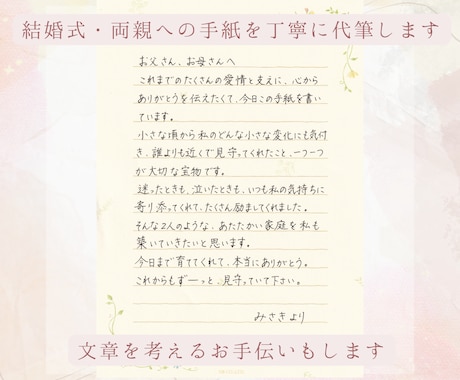 結婚式・両親への手紙を丁寧に代筆します
お父さん、お母さんへ
これまでのたくさんの愛情と支えに、心から
ありがとうを伝えたくて、今日この手紙を書い
ています。
小さな頃から私のどんな小さな変化にも気付
き、誰よりも近くで見守ってくれたこと、一つ一つ
が大切な宝物です。
迷ったときも、泣いたときも、いつも私の気持ちに
寄り添ってくれて、たくさん励ましてくれました。
そんな2人のような、あたたかい家庭を私も
築いていきたいと思います。
今日まで育ててくれて、本当にありがとう。
これからもずーっと、見守っていて下さい。
みさきより
文章を考えるお手伝いもします